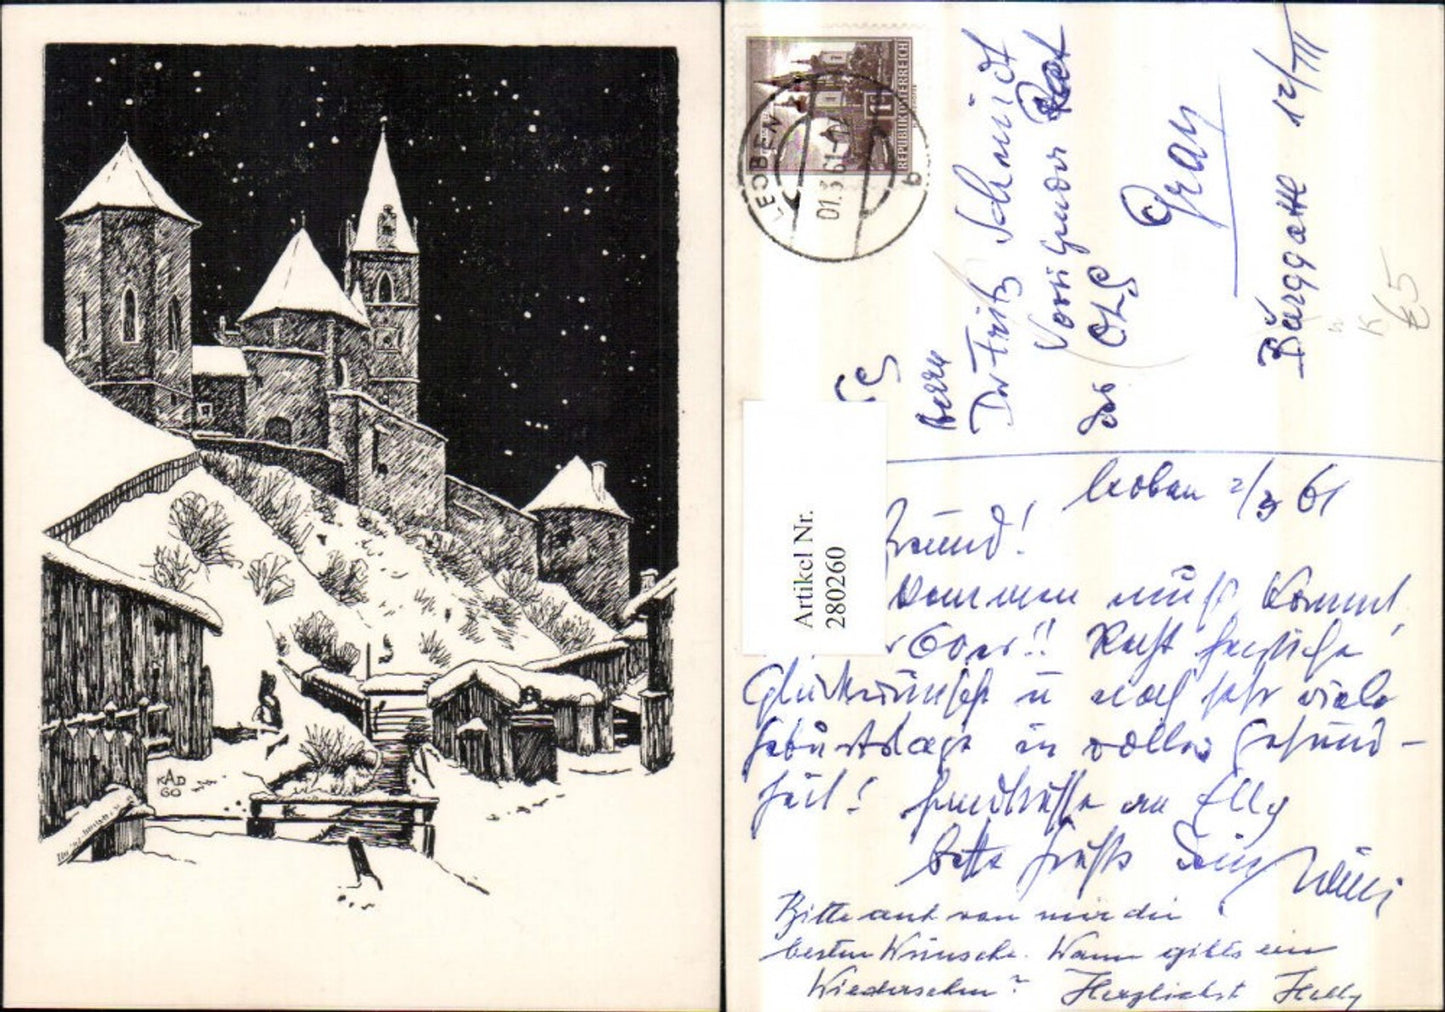 KAD
60
LEOBEN
01.3.61
b
REPUBLIK ÖSTERREICH
1
Herrn
Dr Fritz Schmidt
Vorsitzender Rat
des OLG
Graz
Bürggasse 12/III
€5
K
Artikel Nr.
280260
Leoben 2/3 61
Freund!
man muß kommt
60er!! Recht herzliche
Glückwünsche u noch sehr viele
Geburtstage in voller Gesund-
heit! Handküsse an Elly
bitte Dein Willi
Bitte auch von mir die
besten Wünsche. Wann gibts ein
Wiedersehen? Herzlichst Helly